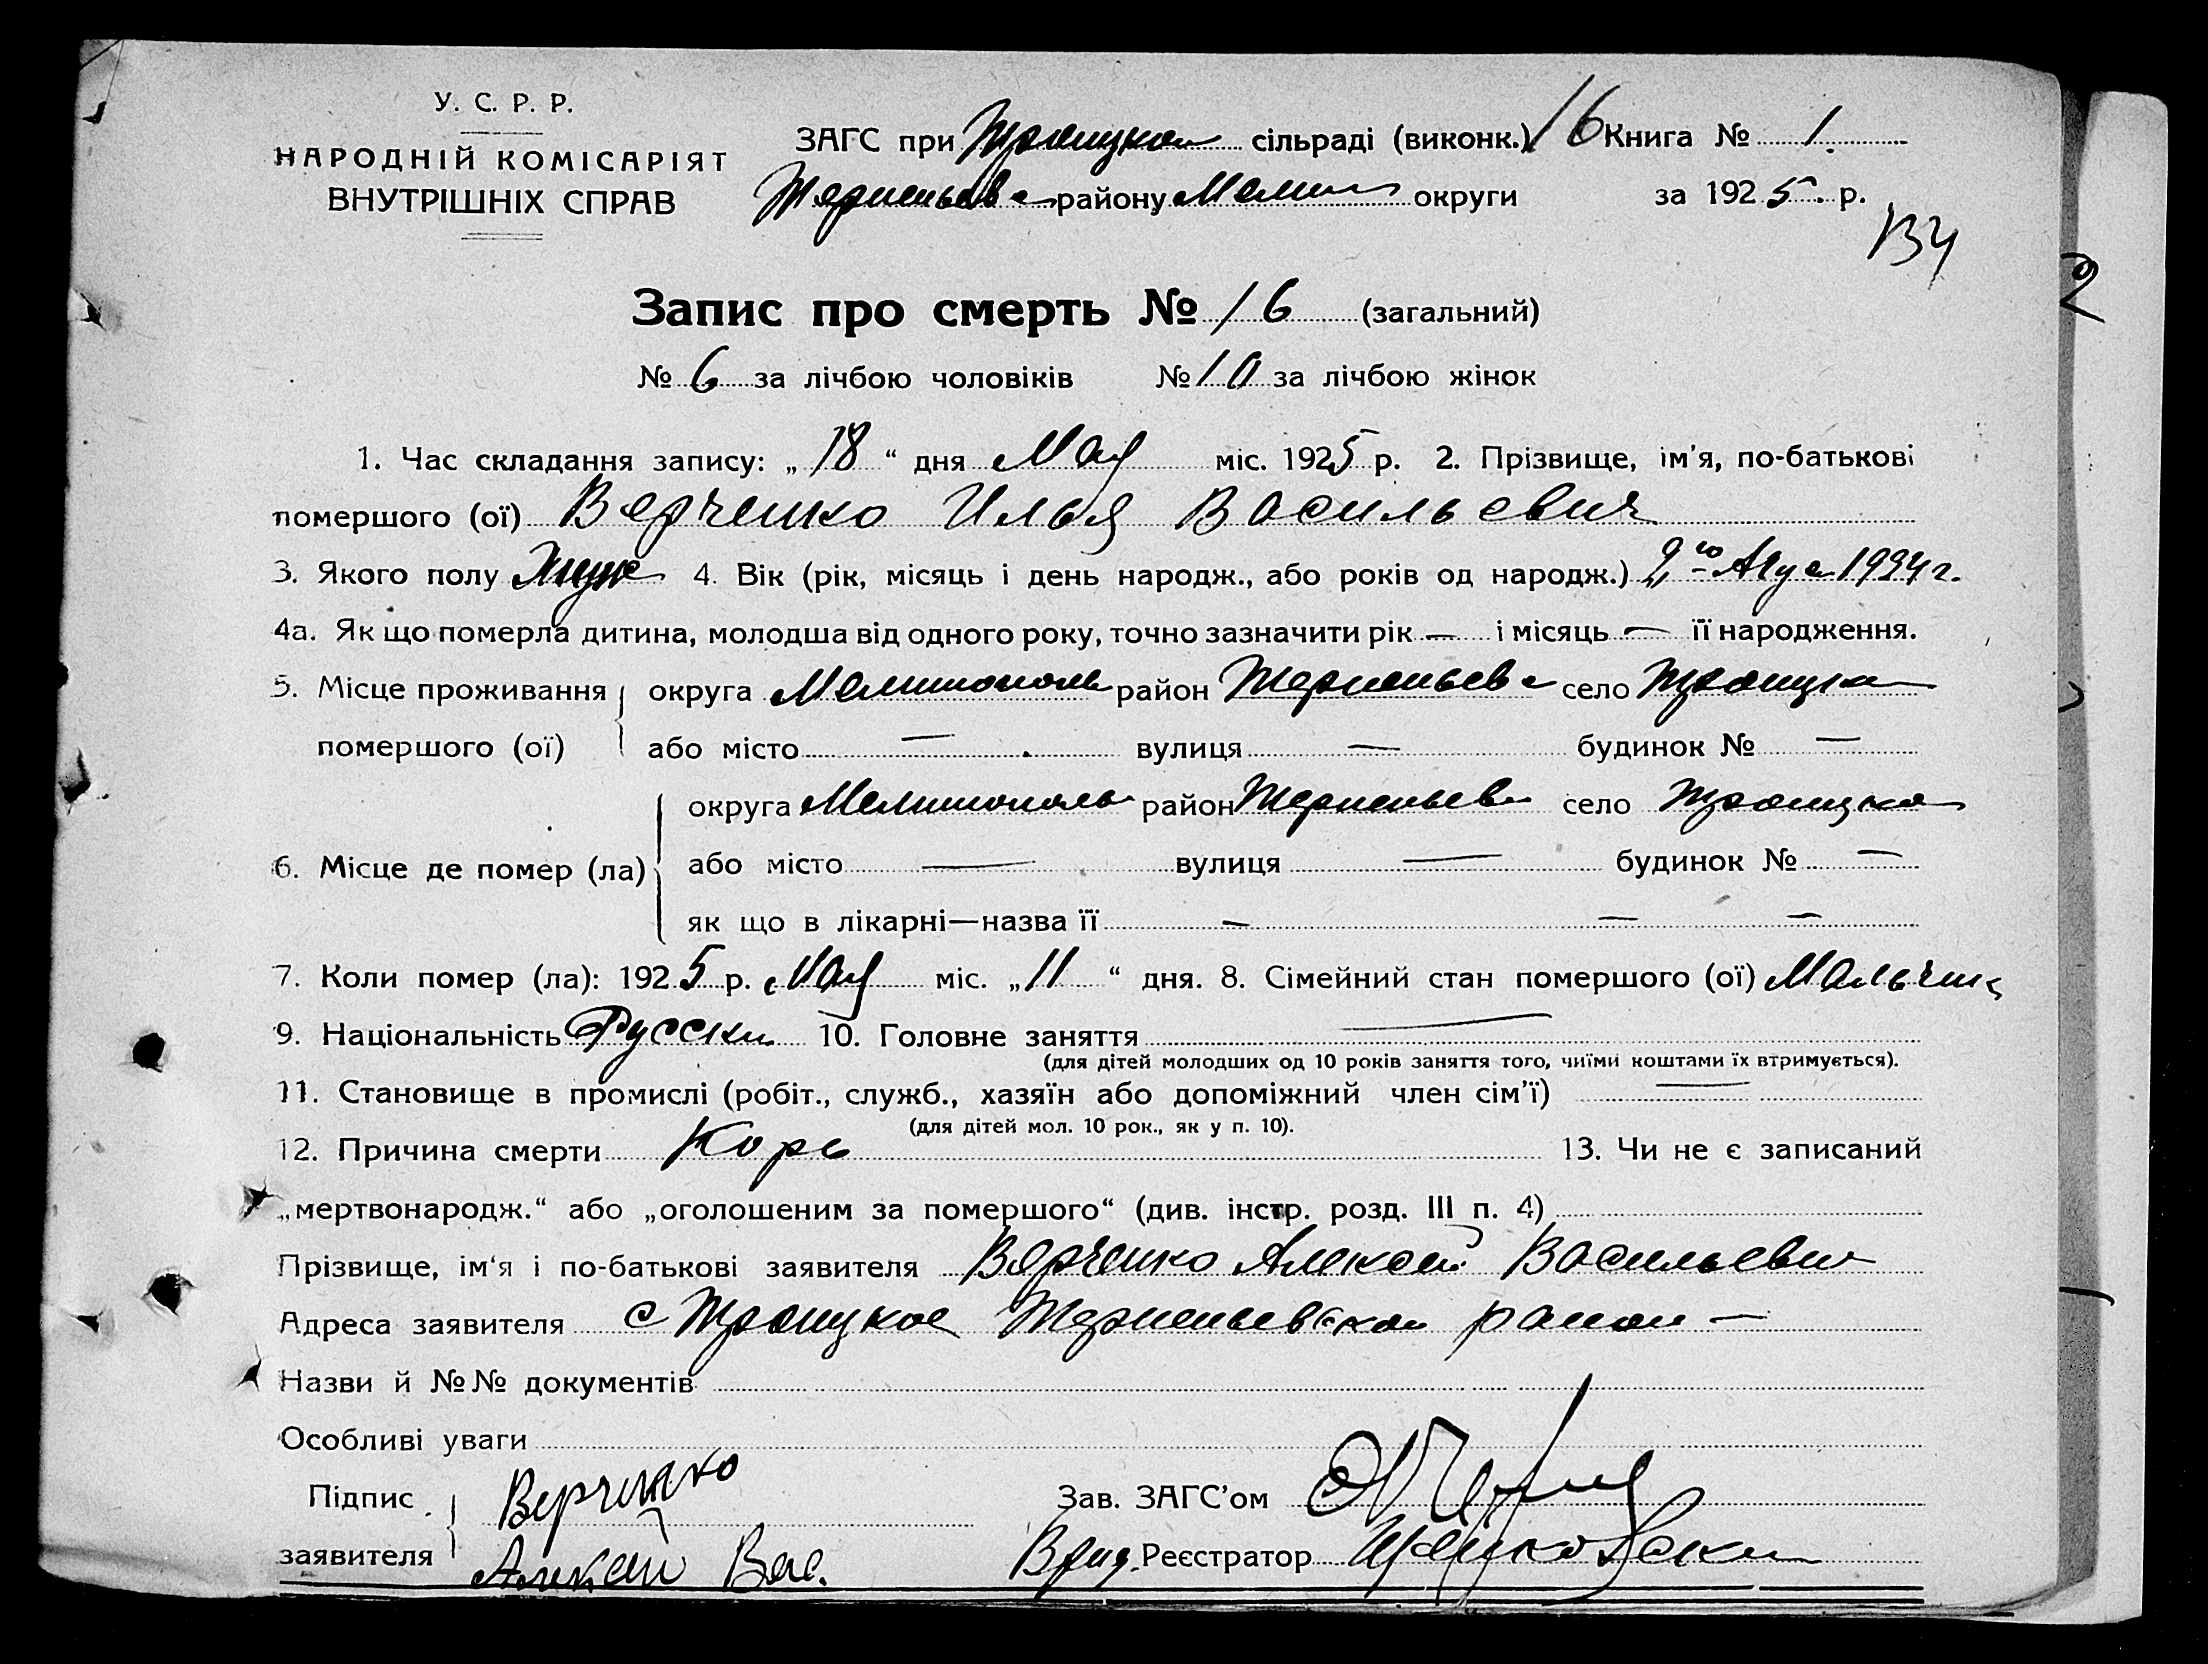 У. С. Р. Р.
НАРОДНІЙ КОМІСАРІЯТ
ВНУТРІШНІХ СПРАВ
ЗАГС при Троицком сільраді (виконк.) 16 Книга № 1.
Терпеньевс району Мелит округи за 1925 р.
134
Запис про смерть № 16 (загальний)
2
№ 6 за лічбою чоловіків № 10 за лічбою жінок
1. Час складання запису: „18“ дня Мая міс. 1925 р. 2. Прізвище, ім'я, по-батькові
помершого (ої) Верченко Илья Васильевич
3. Якого полу Муж 4. Вік (рік, місяць і день народж., або років од народж.) 2го Авгус 1924 г.
4а. Як що померла дитина, молодша від одного року, точно зазначити рік — і місяць — її народження.
5. Місце проживання округа Мелитополь район Терпеньевс село Троицком
помершого (ої) або місто — вулиця — будинок № —
округа Мелитополь район Терпеньевс село Троицком
6. Місце де помер (ла) або місто — вулиця — будинок № —
як що в лікарні—назва її — — —
7. Коли помер (ла): 1925 р. Мая міс. „11“ дня. 8. Сімейний стан помершого (ої) Мальчик
9. Національність Русски 10. Головне заняття —
(для дітей молодших од 10 років заняття того, чиїми коштами їх втримується).
11. Становище в промислі (робіт., служб., хазяїн або допоміжний член сім'ї) —
(для дітей мол. 10 рок., як у п. 10).
12. Причина смерти Корь 13. Чи не є записаний
„мертвонародж.“ або „оголошеним за помершого“ (див. інстр. розд. III п. 4)
Прізвище, ім'я і по-батькові заявителя Верченко Алексей Васильевич
Адреса заявителя с Троицкое Терпеньевском районе —
Назви й №№ документів
Особливі уваги
Підпис Верченко Зав. ЗАГС'ом
заявителя Алексей Вас. Врид. Реєстратор